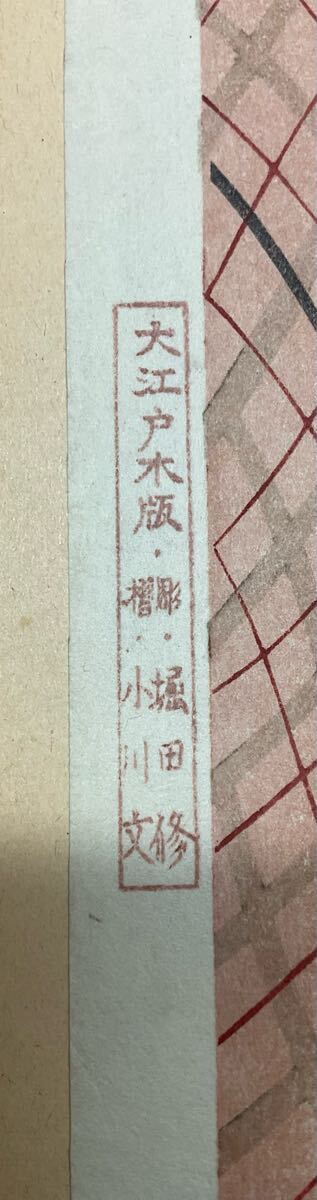 大江戸木版・
彫・堀田修
摺・小川文